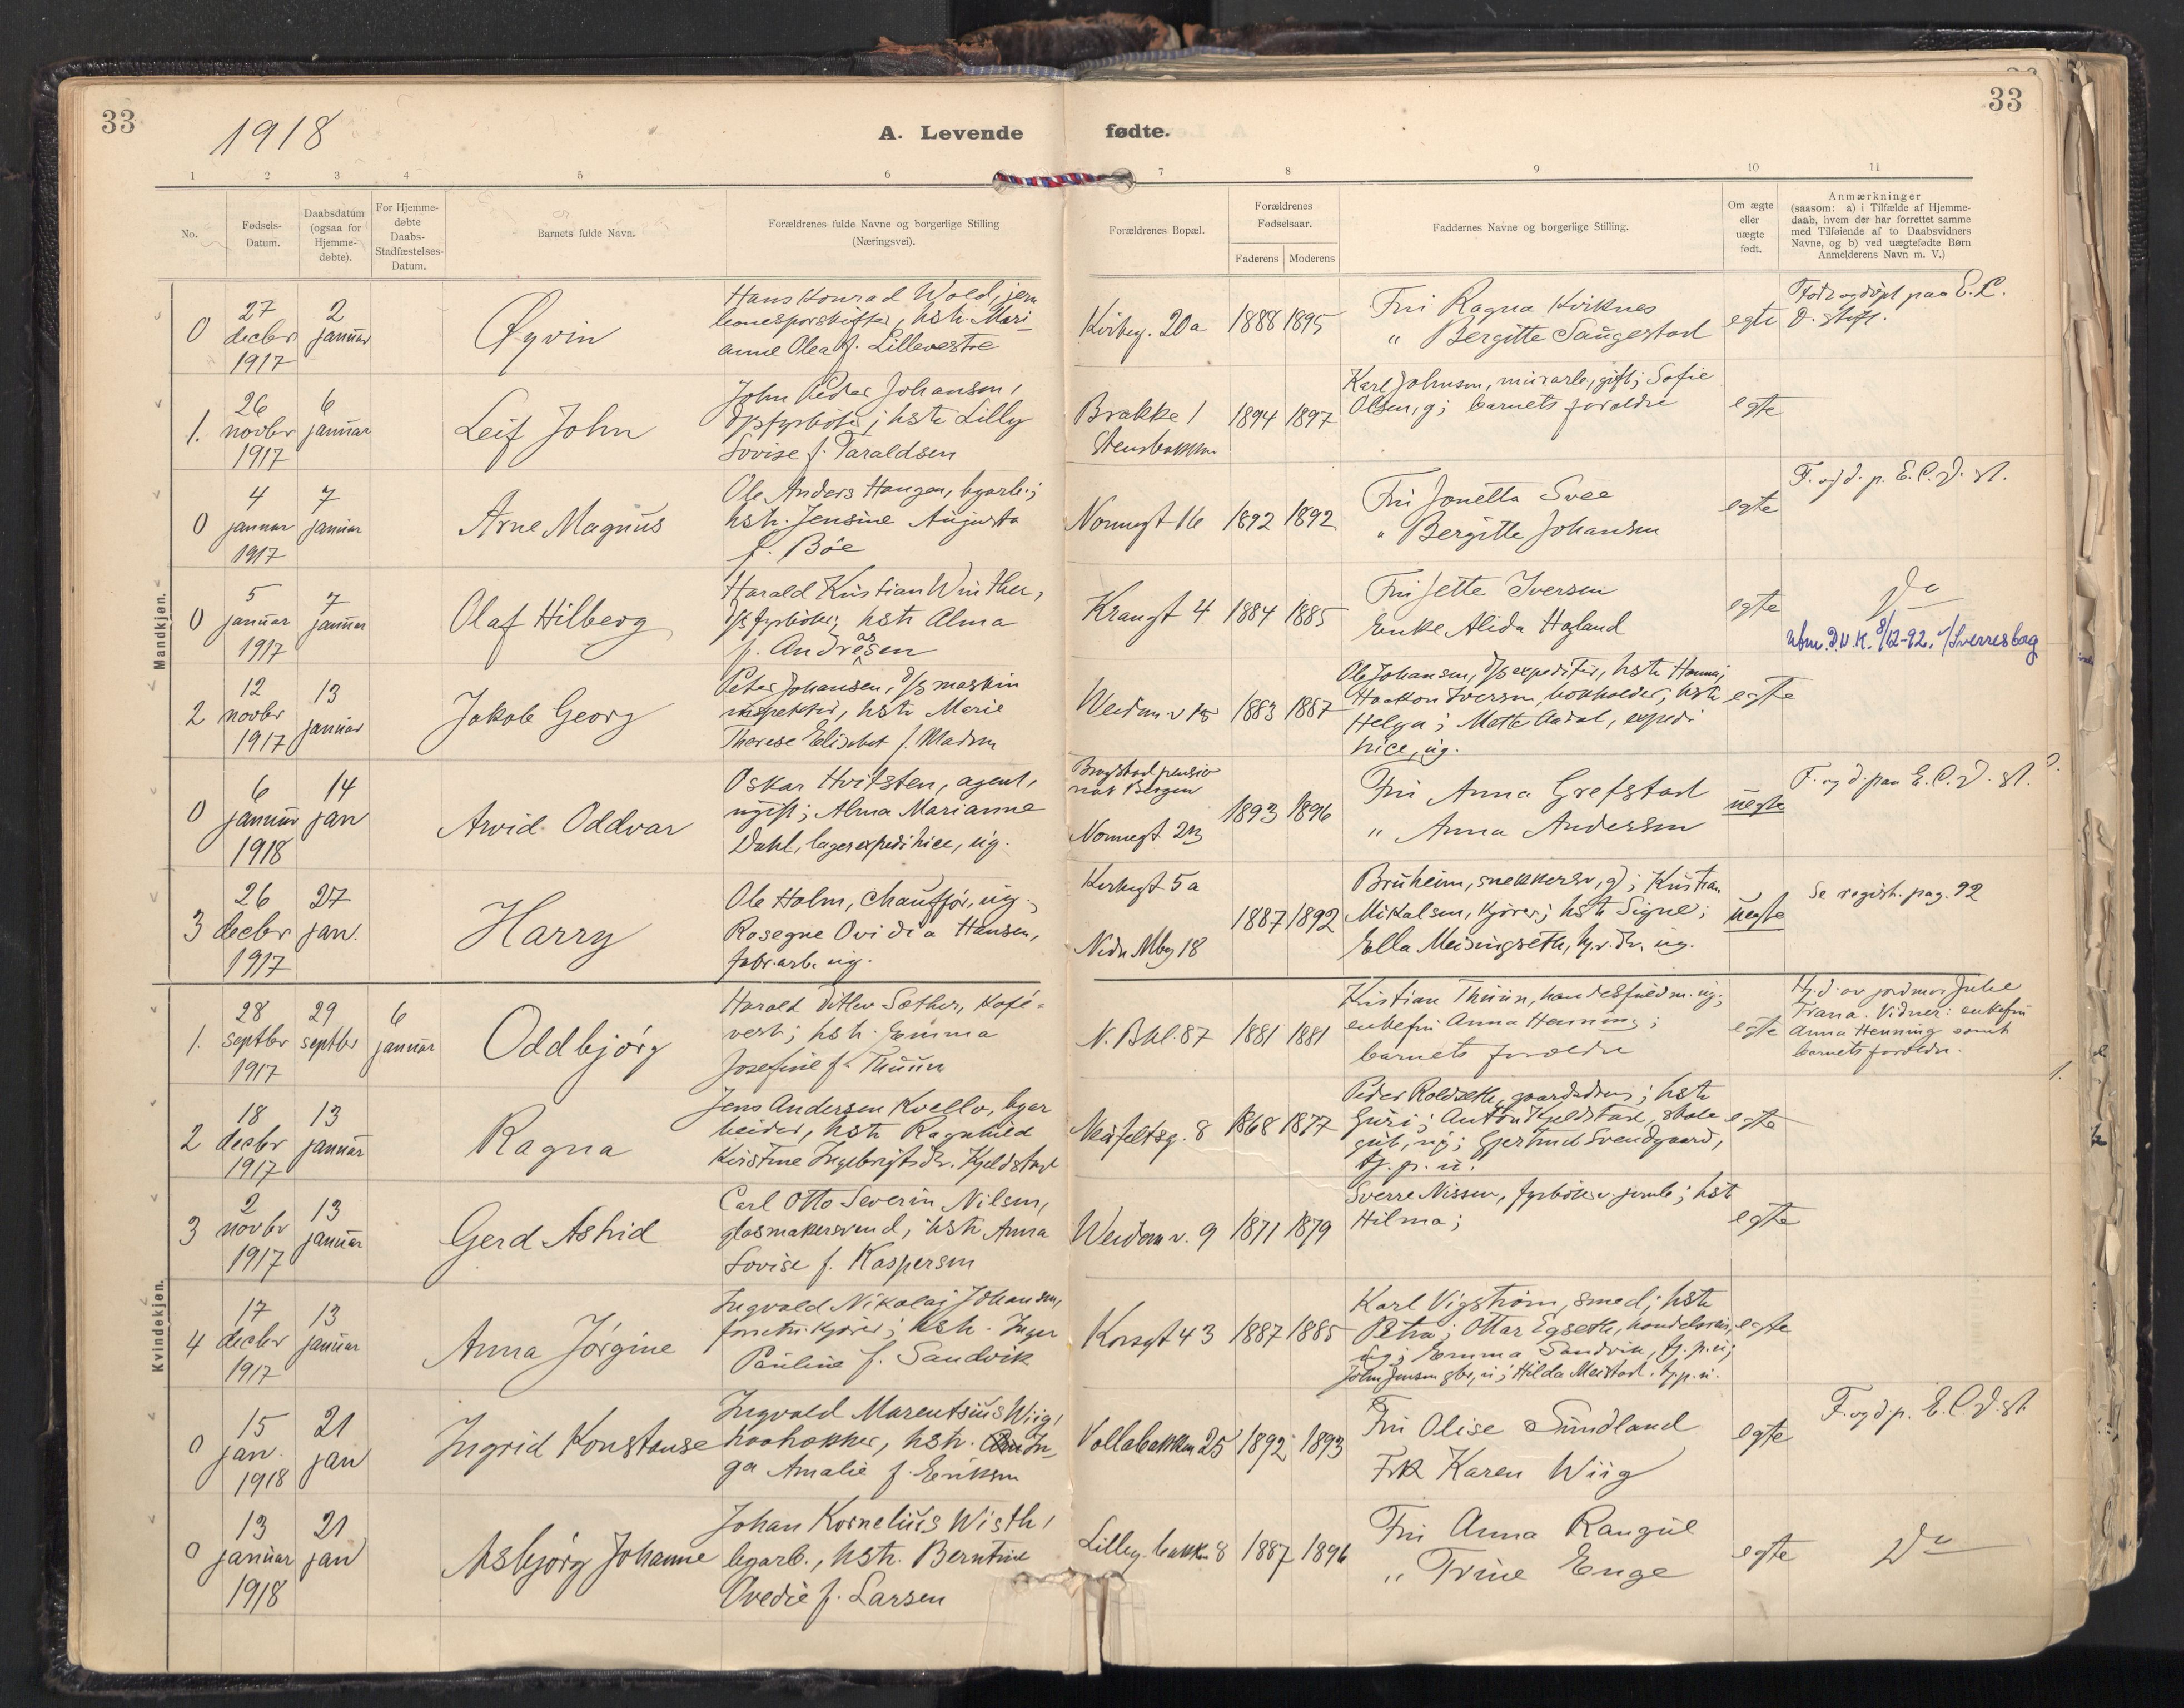 33
1918
A. Levende fødte.
33
1 2 3 4 5 6 7 8 9 10 11
No.
Fødsels-
Datum.
Daabsdatum
(ogsaa for
Hjemme-
døbte).
For Hjemme-
døbte
Daabs-
Stadfæstelses-
Datum.
Barnets fulde Navn.
Forældrenes fulde Navne og borgerlige Stilling
(Næringsvei).
Forældrenes Bopæl.
Forældrenes
Fødselsaar.
Faderens Moderens
Faddernes Navne og borgerlige Stilling.
Om ægte
eller
uægte
født.
Anmærkninger
(saasom: a) i Tilfælde af Hjemme-
daab, hvem der har forrettet samme
med Tilføiende af to Daabsvidners
Navne, og b) ved uægtefødte Børn
Anmelderens Navn m. V.)
Mandkjøn.
0
27
decbr
1917
2
januar
Øyvin
Hans Konrad Wold, jern
banesporskifter, hstr. Mari
anne Olea f. Lillevestre
Kirkeg. 20a
1888 1895
Fru Ragna Kirknes
" Bergitte Saugestad
egte
Født og døpt paa E. C.
D. stift.
1.
26
novbr
1917
6
januar
Leif John
John Peder Johansen,
dpfyrbøter; hstr Lilly
Lovise f. Taraldsen
Brakke 1
Stensbakken
1894 1897
Karl Johnsen, murarb., gift; Sofie
Olsen, g; barnets foreldre
egte
0
4
januar
1917
7
januar
Arne Magnus
Ole Anders Haugen, byarb.;
hstr. Jensine Augusta
f. Bøe
Nonnegt 16
1892 1892
Fru Jonetta Svee
" Bergitte Johansen
egte
F. og d. p. E. C. D. st.
0
5
januar
1917
7
januar
Olaf Hilberg
Harald Kristian Winther,
d/s fyrbøter, hstr Alma
f. Andresen
as
Krangt 4
1884 1885
Fru Jette Iversen
Enke Alida Hagland
egte
Do
utm. D.V.K. 8/12-92. v/Sverresborg
2
12
novbr
1917
13
januar
Jakob Georg
Peter Johansen, d/s maskin
inspektør, hstr Marie
Therese Elisabet f. Madsen
Weidem.v 15
1883 1887
Ole Johansen, d/s expeditør, hstr Hanna;
Haakon Iversen, bokholder; hstr
Helga; Mette Aadal, expedi
trice, ug.
egte
0
6
januar
1918
14
jan
Arvid Oddvar
Oskar Hvitsten, agent,
ugift; Alma Marianne
Dahl, lagerexpeditrice, ug.
Brogstad pensio
nat Bergen
Nonnegt. 23
1893 1896
Fru Anna Grefstad
" Anna Andersen
uegte
F. og d. paa E. C. D. st.
3
26
decbr
1917
27
jan.
Harry
Ole Holm, chauffør, ug.;
Rosegne Ovidia Hansen,
fabr.arb. ug.
Kirkegt 5a
Nedr Mbg 18
1887 1892
Bruheim, snekkersv, g; Kristian
Mikalsen, kjører; hstr Signe;
Ella Meisingseth, ug.
uegte
Se regist. pag. 92
Kvindekjøn.
1.
28
septbr
1917
29
septbr
6
januar
Oddbjørg
Harald Ditlev Sæther, kafé-
vert; hstr. Emma
Josefine f. Thuun
N. Bkl. 87
1881 1881
Kristian Thuun, handelsfuldm. ug.;
enkefru Anna Henning;
barnets foreldre
egte
Hj. d. av jordmor Julie
Trana. Vidner: enkefru
Anna Henning samt
barnets foreldre.
1.
2
18
decbr
1917
13
januar
Ragna
Jens Andersen Kvello, byar
beider, hstr Ragnhild
Kirstine Ingebrigtsdr. Kjeldstad
8
1868 1877
Peder Roldseth, gaardsdreng; hstr
Guri; Anton Kjeldstad, skole
gut, ug; Gjertrud Svendgaard,
tj. p. u.
egte
3
2
novbr
1917
13
januar
Gerd Astrid
Carl Otto Severin Nilsen,
glasmakersvend; hstr Anna
Lovise f. Kaspersen
Weidem v. 9
1871 1879
Sverre Nissen, fyrbøter v. jernb; hstr
Hilma;
egte
4
17
decbr
1917
13
januar
Anna Jørgine
Ingvald Nikolai Johansen,
forretn.kjører; hstr. Inger
Pauline f. Sandvik
Korsgt 43
1887 1885
Karl Vigstrøm, smed; hstr
Petra; Ottar Egseth, handelsreis,
ug; Emma Sandvik, tj. p. u;
John Jensen gbr, u; Hilda Meistad, tj. p. u.
egte
0
15
jan.
1918
21
jan
Ingrid Konstanse
Ingvald Marentsius Wiig,
bøkker, hstr. In
ga Amalie f. Eriksen
Vollabakken 25
1892 1893
Fru Olise Sundland
Frk Karen Wiig
egte
F. og d. p. E. C. D. st
0
13
januar
1918
21
jan
Asbjørg Johanne
Johan Kornelius Wisth,
byarb., hstr. Berntine
Ovedie f. Larsen
Lilleg.bakken 8
1887 1896
Fru Anna Rangul
" Trine Enge
egte
Do